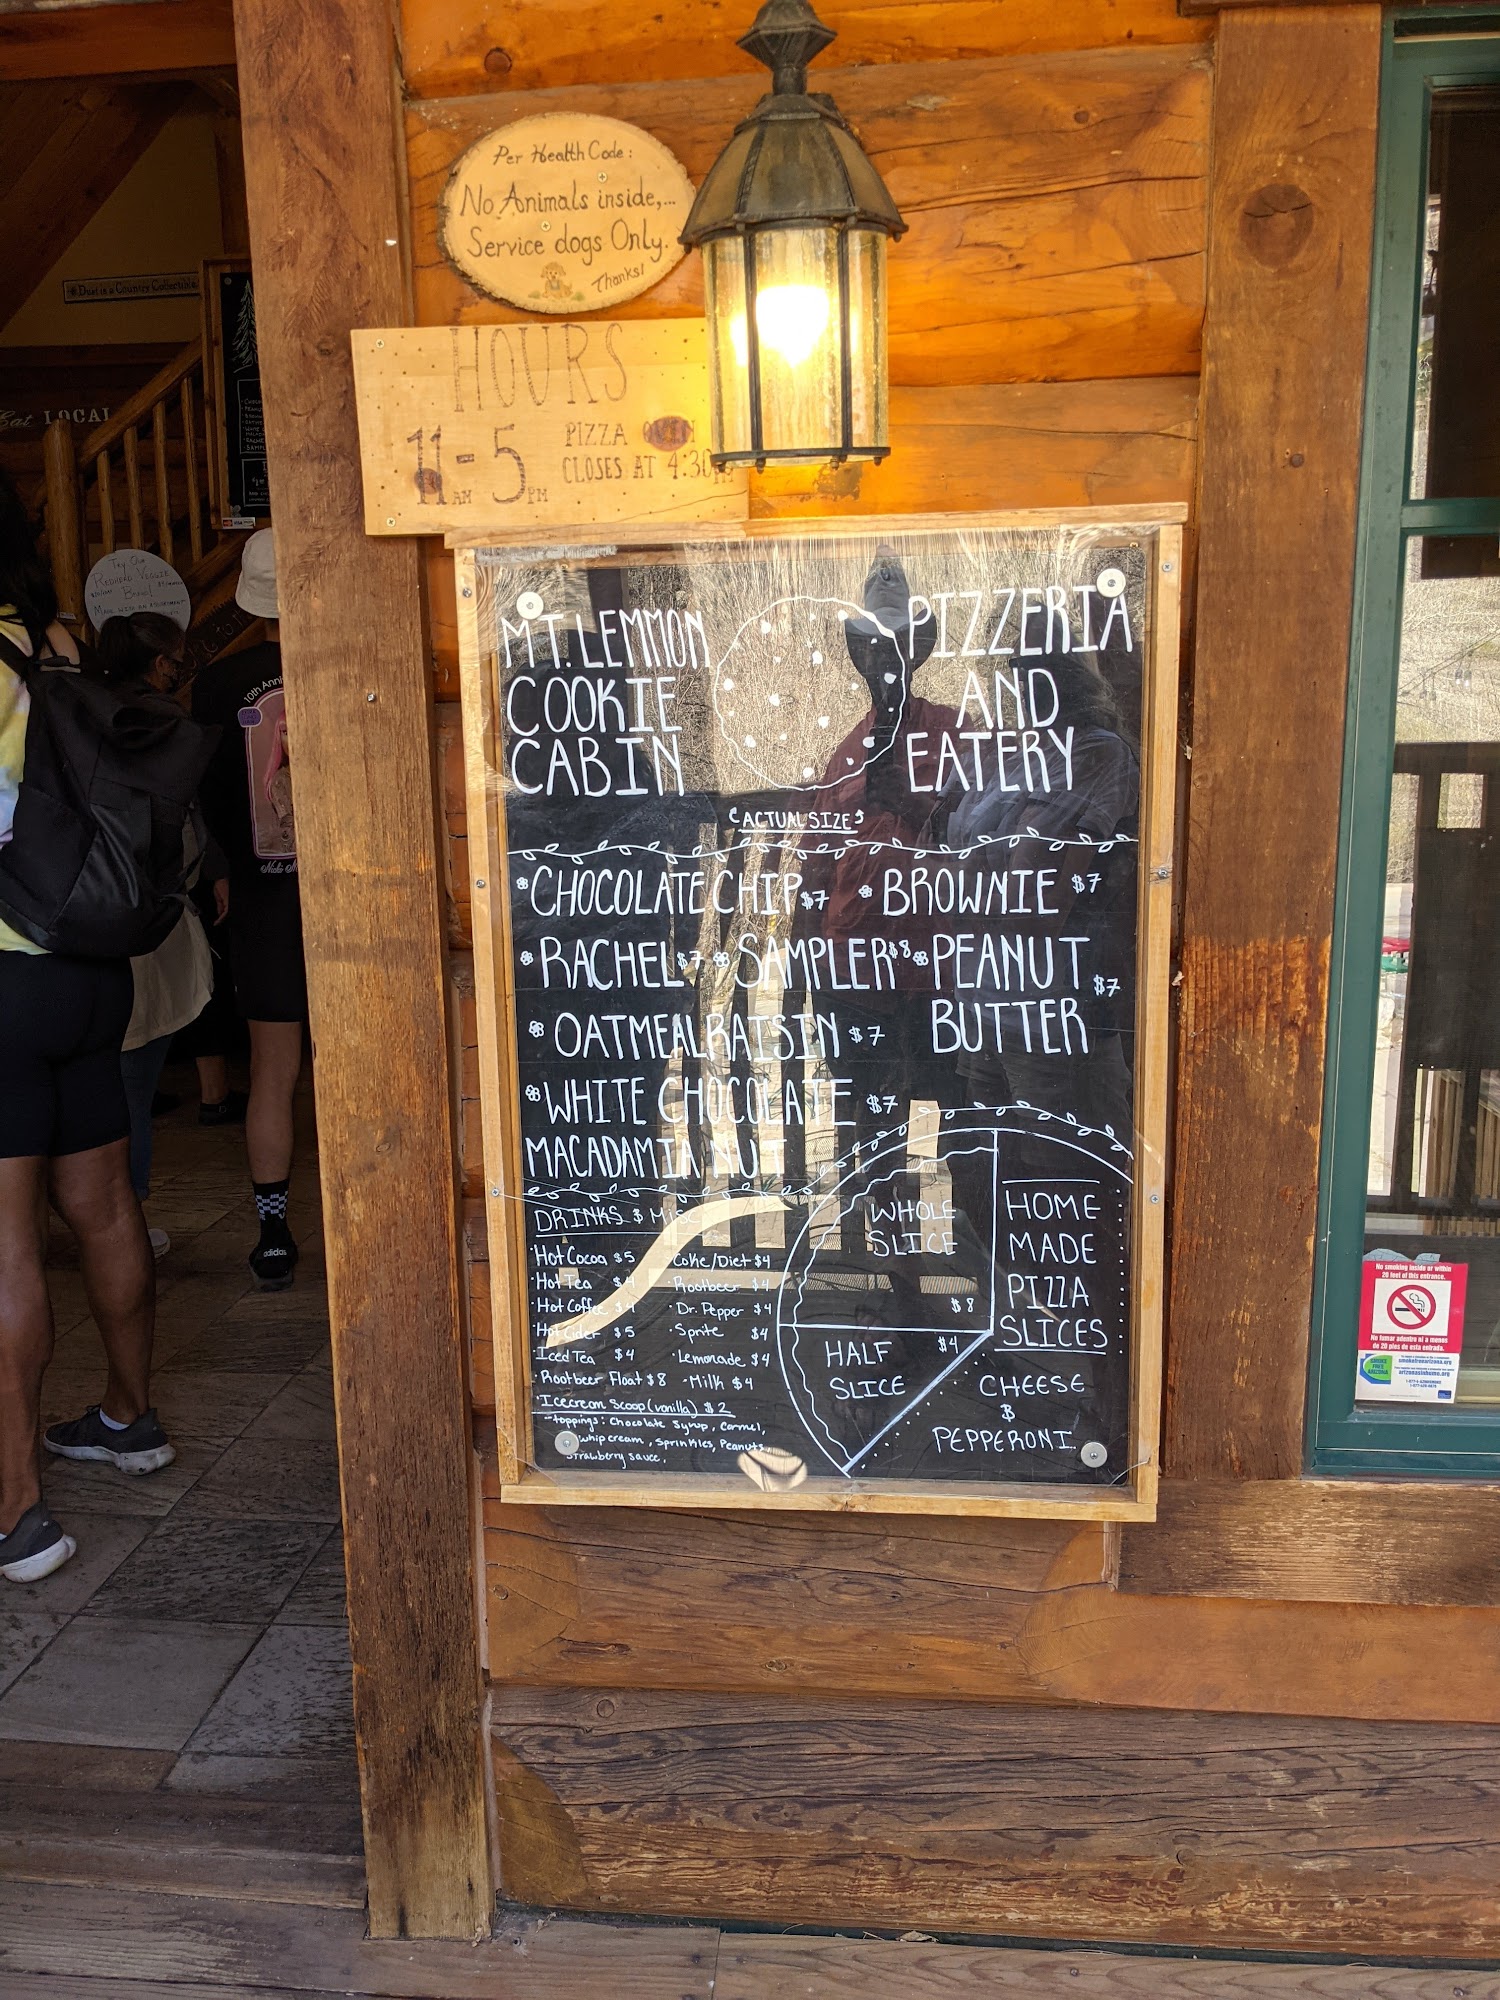 Per Health Code:
No Animals inside,...
Service dogs Only.
Thanks!
#Dust is a Country Collectible
Eat LOCAL
HOURS
11AM - 5PM
PIZZA OVEN
CLOSES AT 4:30PM
Try Our
REDHEAD VEGGIE
10th Anni
MT. LEMMON
COOKIE
CABIN
PIZZERIA
AND
EATERY
ACTUAL SIZE
CHOCOLATE CHIP $7
BROWNIE $7
RACHEL $7
SAMPLER $8
PEANUT
BUTTER $7
OATMEAL RAISIN $7
WHITE CHOCOLATE $7
MACADAMIA NUT
DRINKS $ Misc
Hot Cocoa $5
Hot Tea $4
Hot Coffee $4
Hot Cider $5
Iced Tea $4
Rootbeer Float $8
Coke/Diet $4
Rootbeer $4
Dr. Pepper $4
Sprite $4
Lemonade $4
Milk $4
Icecream Scoop (vanilla) $2
toppings: Chocolate Syrup, Carmel,
whip cream, Sprinkles, Peanuts,
Strawberry Sauce,
WHOLE
SLICE
$8
HALF
SLICE
$4
HOME
MADE
PIZZA
SLICES
CHEESE
$
PEPPERONI
adidas
No smoking inside or within
20 feet of this entrance.
No fumar adentro ni a menos
de 20 pies de esta entrada.
SMOKE
FREE
ARIZONA
smokefreearizona.org
arizonasinhumo.org